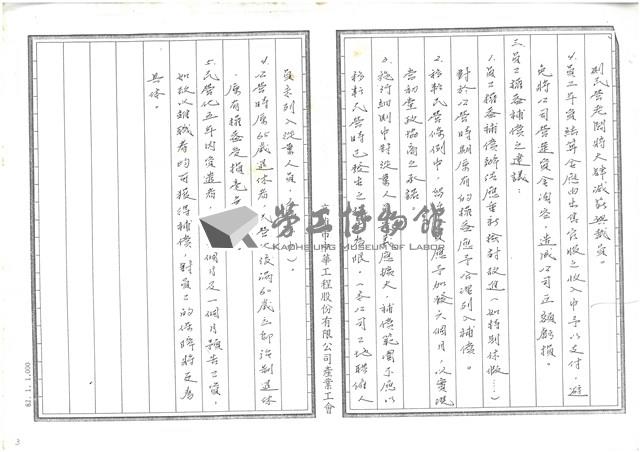 則民營老闆將大肆減薪與裁員。
4.員工年資結算金應由出售官股之收入中予以支付,避
免將公司營運資金淘空,造成公司巨額虧損。
三、員工權益補償之建議:
1.員工權益補償辦法應重新檢討改進(如特別休假……)
對於公營時期原有的權益應予合理列入補償。
2.移轉民營條例中,
應予加發六個月,以實現
當初黨政協商之承諾。
3.施行細則中對從業人
應擴大,補償範圍不應以
移轉民營時已
為限,(本公司工地聘僱人
高雄市
華工程股份有限公司產業工會
員未列入從業人員,
)。
4.公營時原65歲退休者,民營
後滿60歲立即強制退休
,原有權益受損
5.民營化五年內資遣者,
個月及一個月預告工資,
如改以離職者均可獲得補償,對員工的保障將更為
具體。
勞工博物館
KAOHSIUNG MUSEUM OF LABOR
82.1.1,000
3